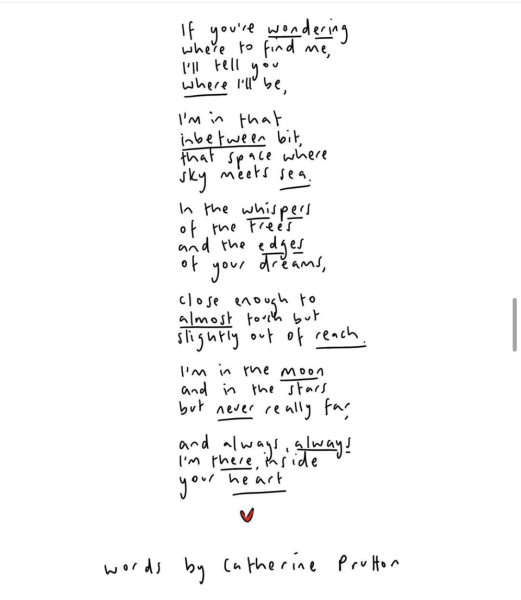 If you're wondering
where to find me,
I'll tell you
where I'll be,
I'm in that
inbetween bit,
that space where
sky meets sea.
In the whispers
of the trees
and the edges
of your dreams,
close enough to
almost touch but
slightly out of reach.
I'm in the moon
and in the stars
but never really far,
and always, always
I'm there, inside
your heart
words by Catherine Prutton